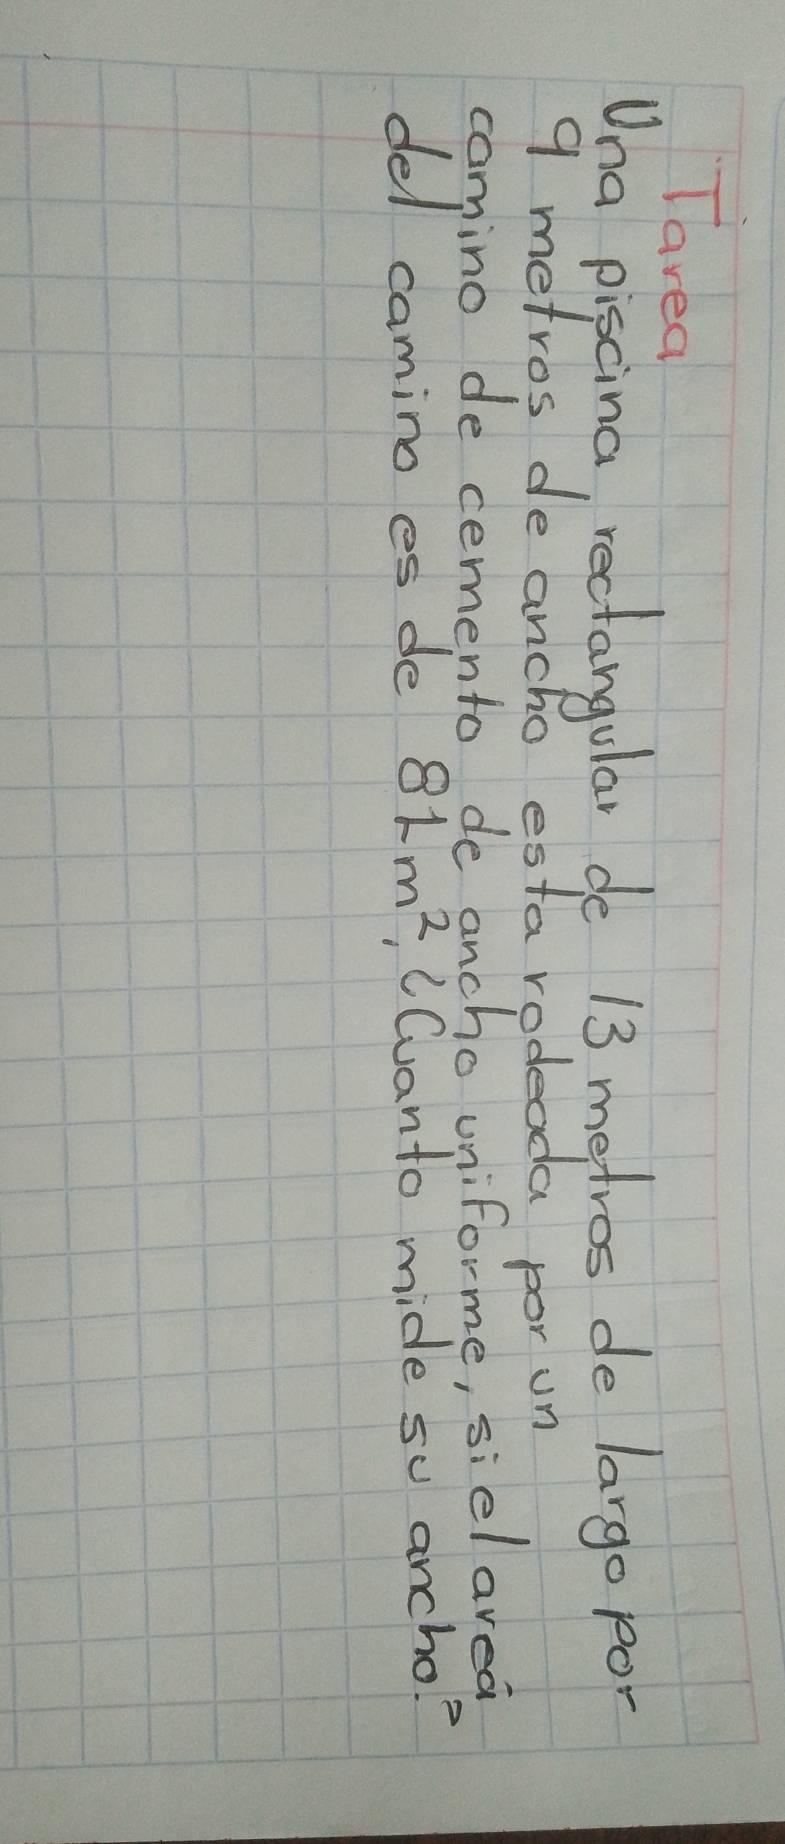 Tarea
Una piscina rectangular de 13 metros de largo por
9 metros de ancho esta rodeada por un
camino de cemento de ancho uniforme, si el areá
del camino es de 81m², ¿Cuanto mide su ancho?